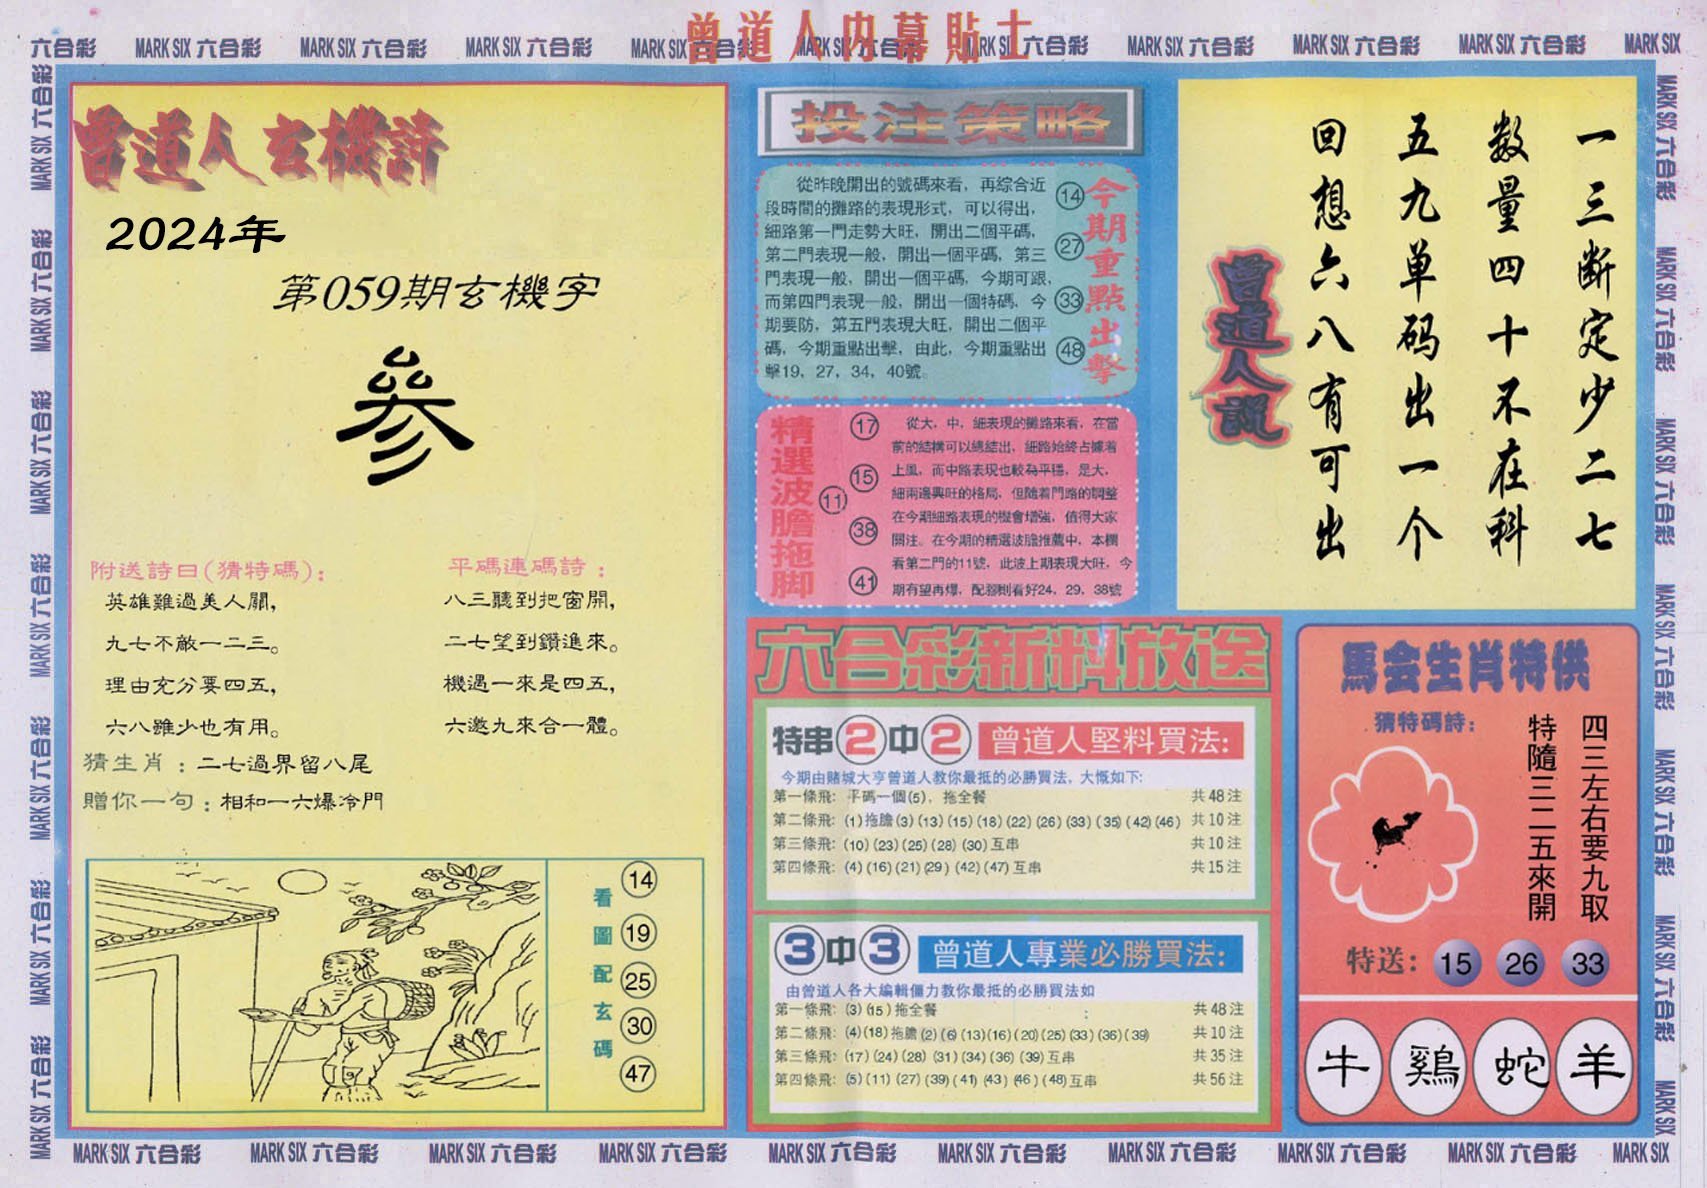 六合彩 MARK SIX 六合彩 MARK SIX 六合彩 MARK SIX 六合彩 MARK SIX 六合彩 MARK SIX 六合彩 MARK SIX 六合彩 MARK SIX 六合彩 MARK SIX 六合彩 MARK SIX 六合彩 MARK SIX
曾道人内幕貼士
曾道人玄機詩
2024年
第059期玄機字
參
附送詩曰(猜特碼):
英雄難過美人關，
九七不敵一二三。
理由充分要四五，
六八雖少也有用。
平碼連碼詩：
八三聽到把窗開，
二七望到鑽進來。
機遇一來是四五，
六邀九來合一體。
猜生肖：二七過界留八尾
贈你一句：相和一六爆冷門
看圖配玄碼
14
19
25
30
47
投注策略
從昨晚開出的號碼來看，再綜合近
段時間的攤路的表現形式，可以得出，
細路第一門走勢大旺，開出二個平碼，
第二門表現一般，開出一個平碼，第三
門表現一般，開出一個平碼，今期可跟，
而第四門表現一般，開出一個特碼，今
期要防，第五門表現大旺，開出二個平
碼，今期重點出擊，由此，今期重點出
擊19，27，34，40號。
14
27
33
48
今期重點出擊
精選波膽拖脚
11
17
15
38
41
從大，中，細表現的攤路來看，在當
前的結構可以總結出，細路始終占據着
上風，而中路表現也較為平穩，是大，
細兩邊興旺的格局，但隨着門路的調整
在今期細路表現的機會增強，值得大家
關注。在今期的精選波膽推薦中，本欄
看第二門的11號，此波上期表現大旺，今
期有望再爆，配腳則看好24，29，38號
一三断定少二七
数量四十不在科
五九单码出一个
回想六八有可出
曾道人説
六合彩新料放送
特串2中2 曾道人堅料買法:
今期由賭城大亨曾道人教你最抵的必勝買法，大慨如下:
第一條飛: 平碼一個(5)，拖全餐 共48注
第二條飛: (1)拖膽(3)(13)(15)(18)(22)(26)(33)(35)(42)(46) 共10注
第三條飛: (10)(23)(25)(28)(30)互串 共10注
第四條飛: (4)(16)(21)(29)(42)(47)互串 共15注
3中3 曾道人專業必勝買法:
由曾道人各大編輯僵力教你最抵的必勝買法如
第一條飛: (3)(15)拖全餐 共48注
第二條飛: (4)(18)拖膽(2)(6)(13)(16)(20)(25)(33)(36)(39) 共10注
第三條飛: (17)(24)(28)(31)(34)(36)(39)互串 共35注
第四條飛: (5)(11)(27)(39)(41)(43)(46)(48)互串 共56注
馬会生肖特供
猜特碼詩:
四三左右要九取
特隨三二五來開
特送: 15 26 33
牛 鷄 蛇 羊
MARK SIX 六合彩 MARK SIX 六合彩 MARK SIX 六合彩 MARK SIX 六合彩 MARK SIX 六合彩 MARK SIX 六合彩 MARK SIX 六合彩 MARK SIX 六合彩 MARK SIX 六合彩 MARK SIX
MARK SIX 六合彩 MARK SIX 六合彩 MARK SIX 六合彩 MARK SIX 六合彩 MARK SIX 六合彩 MARK SIX 六合彩 MARK SIX 六合彩
MARK SIX 六合彩 MARK SIX 六合彩 MARK SIX 六合彩 MARK SIX 六合彩 MARK SIX 六合彩 MARK SIX 六合彩 MARK SIX